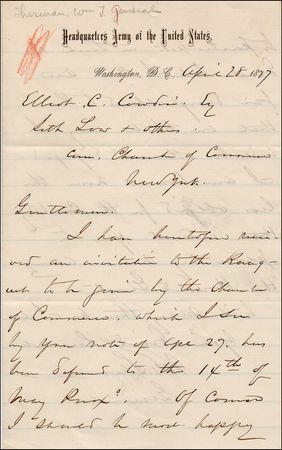 Sherman, Wm T. General
Headquarters Army of the United States,
Washington, D.C. April 28 1877
Elliot C. Cowdin Esq
Seth Low & others.
Com. Chamber of Commerce
New York.
Gentlemen:
I have heretofore recei-
ved an invitation to the Banq-
uet to be given by the Chamber
of Commerce, which I see
by your note of Apl 27. has
been deferred to the 14th of
May Proxo. Of course
I should be most happy